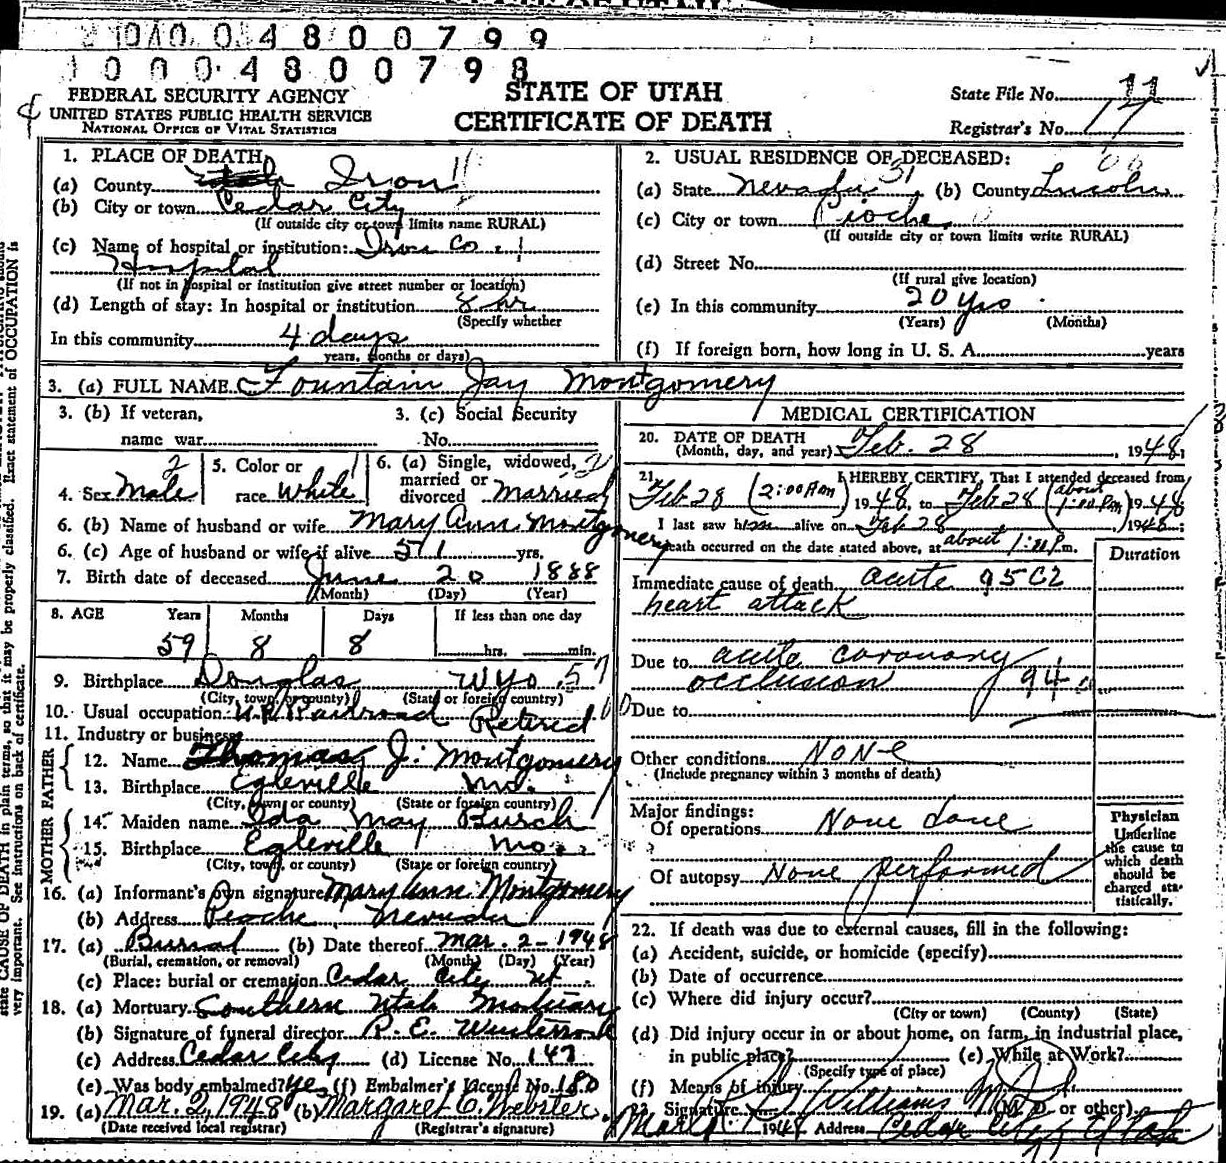 0 4 8 0 0 7 9 9
0 0 0 4 8 0 0 7 9 8
FEDERAL SECURITY AGENCY
UNITED STATES PUBLIC HEALTH SERVICE
NATIONAL OFFICE OF VITAL STATISTICS
STATE OF UTAH
CERTIFICATE OF DEATH
State File No. 11
Registrar's No. 17
1. PLACE OF DEATH
(a) County Iron
(b) City or town Cedar City
(If outside city or town limits name RURAL)
(c) Name of hospital or institution: Iron Co.
Hospital
(If not in hospital or institution give street number or location)
(d) Length of stay: In hospital or institution 8 hr
(Specify whether
In this community 4 days
years, months or days)
2. USUAL RESIDENCE OF DECEASED:
(a) State Nevada (b) County Lincoln
(c) City or town Pioche
(If outside city or town limits write RURAL)
(d) Street No.
(If rural give location)
(e) In this community 20 yrs
(Years) (Months)
(f) If foreign born, how long in U. S. A. years
3. (a) FULL NAME Fountain Jay Montgomery
3. (b) If veteran,
name war
3. (c) Social Security
No.
4. Sex Male
5. Color or
race White
6. (a) Single, widowed,
married or
divorced Married
6. (b) Name of husband or wife Mary Ann Montgomery
6. (c) Age of husband or wife if alive 51 yrs.
7. Birth date of deceased June 20 1888
(Month) (Day) (Year)
8. AGE Years Months Days If less than one day
59 8 8 hrs. min.
9. Birthplace Douglas Wyo. 57
(City, town, or county) (State or foreign country)
10. Usual occupation U.P. Railroad Retired
11. Industry or business
MOTHER FATHER
12. Name Thomas J. Montgomery
13. Birthplace Egleville Mo.
(City, town or county) (State or foreign country)
14. Maiden name Ida May Busch
15. Birthplace Egleville Mo.
(City, town, or county) (State or foreign country)
16. (a) Informant's own signature Mary Ann Montgomery
(b) Address Pioche Nevada
17. (a) Burial (b) Date thereof Mar. 2-1948
(Burial, cremation, or removal) (Month) (Day) (Year)
(c) Place: burial or cremation Cedar City Ut
18. (a) Mortuary Southern Utah Mortuary
(b) Signature of funeral director R. E.
(c) Address Cedar City (d) License No. 147
(e) Was body embalmed? Yes (f) Embalmer's License No. 180
19. (a) Mar. 2, 1948 (b) Margaret C. Webster
(Date received local registrar) (Registrar's signature)
MEDICAL CERTIFICATION
20. DATE OF DEATH
(Month, day, and year) Feb. 28, 1948
21. I HEREBY CERTIFY, That I attended deceased from
Feb 28 (2:00 Am) 1948 to Feb 28 (about 1:00 Pm) 1948
I last saw him alive on Feb 28 1948;
death occurred on the date stated above, at about 1:00 P.m.
Duration
Immediate cause of death acute 95C2
heart attack
Due to acute coronary
occlusion 94
Due to
Other conditions None
(Include pregnancy within 3 months of death)
Major findings:
Of operations None done
Of autopsy None performed
Physician
Underline
the cause to
which death
should be
charged sta-
tistically.
22. If death was due to external causes, fill in the following:
(a) Accident, suicide, or homicide (specify)
(b) Date of occurrence
(c) Where did injury occur?
(City or town) (County) (State)
(d) Did injury occur in or about home, on farm, in industrial place,
in public place? (e) While at Work?
(Specify type of place)
(f) Means of injury
23. Signature Williams M.D. (M. D. or other)
1948 Address Cedar City Utah
state CAUSE OF DEATH in plain terms, so that it may be properly classified. Exact statement of OCCUPATION is
very important. See instructions on back of certificate.